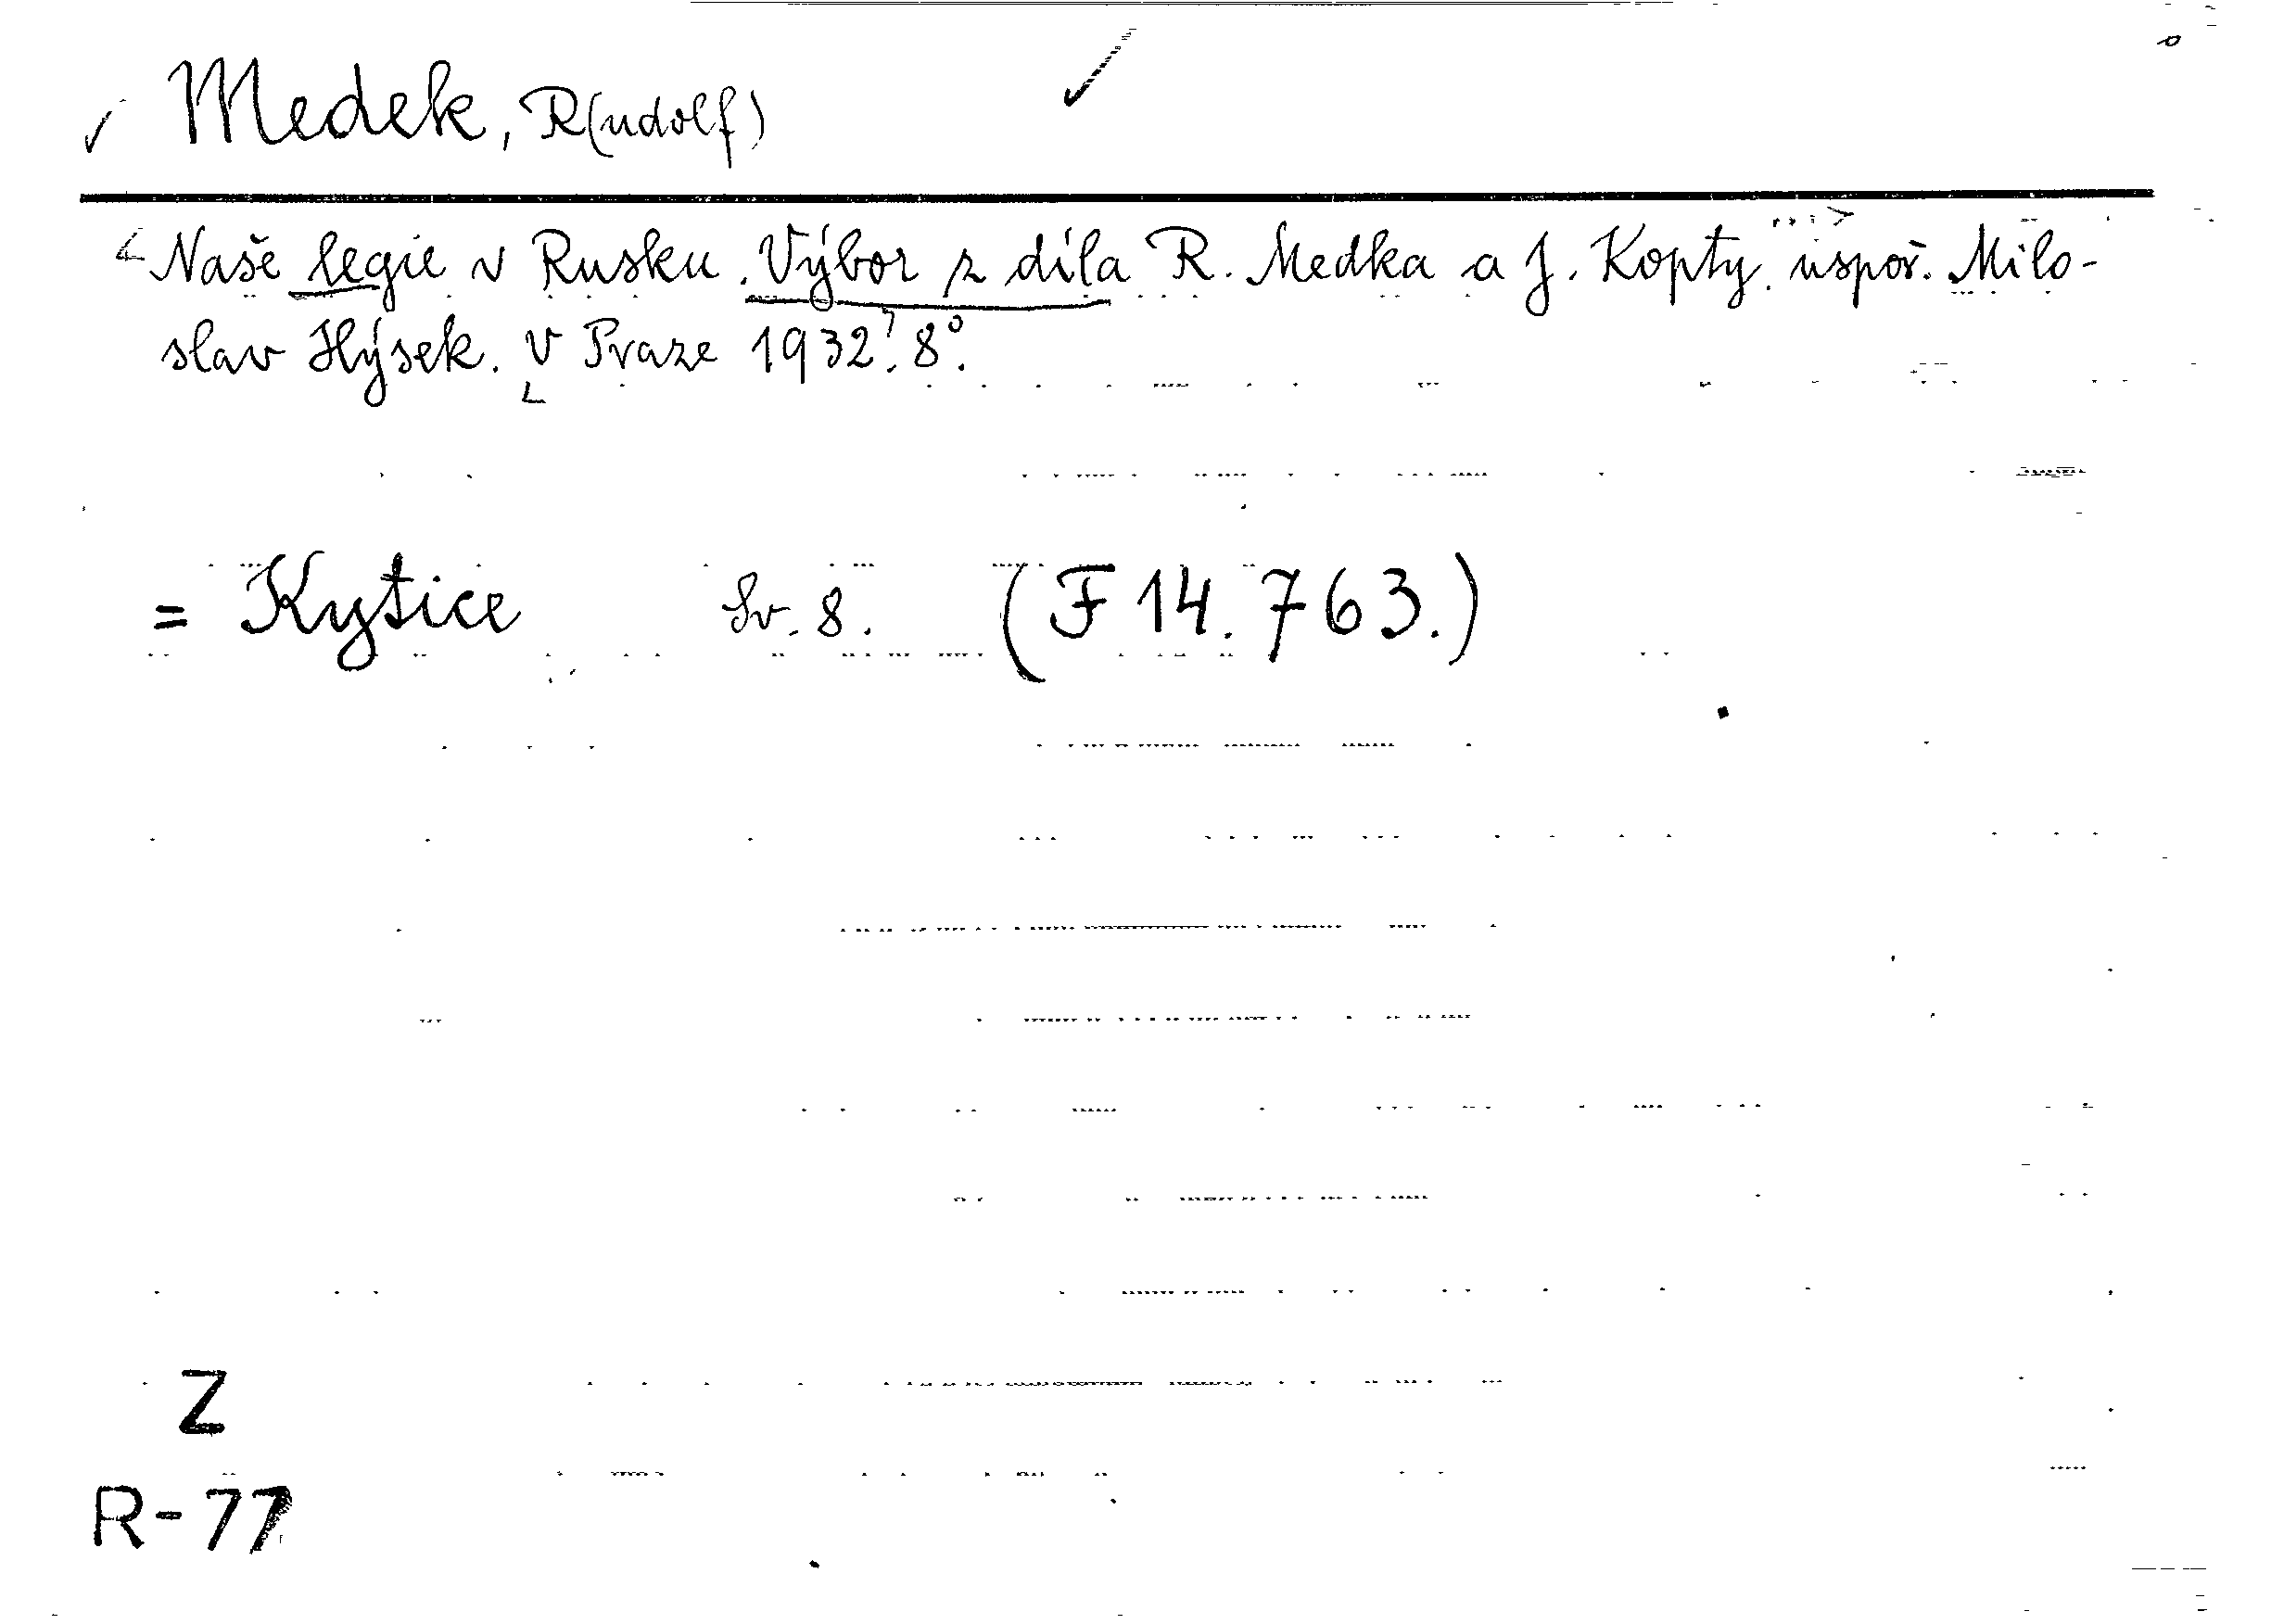 Medek, R(udolf)
Naše legie v Rusku. Výbor z díla R. Medka a J. Kopty. uspoř. Milo-
slav Hýsek. V Praze 1932. 8°.
= Kytice Sv. 8. (F 14.763.)
Z
R-77